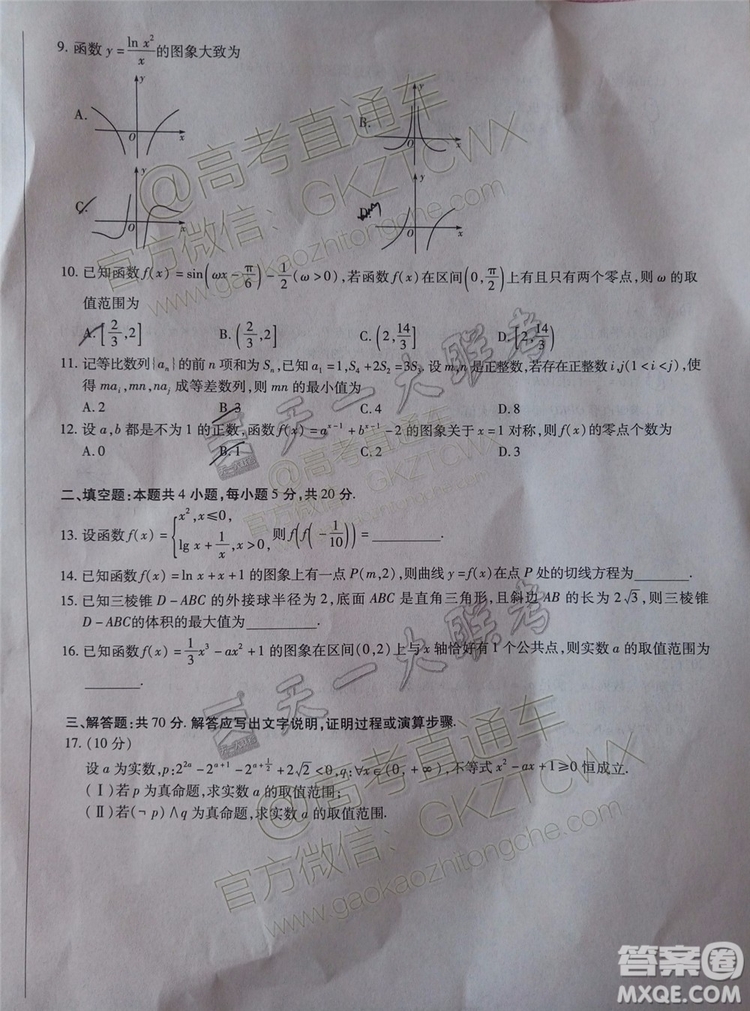 9. 函数 y = ln x² / x 的图象大致为
A.
B.
y
O
x
y
O
x
C.
D.
y
O
x
y
O
x
10. 已知函数 f(x) = sin(ωx − π/6) − 1/2 (ω > 0), 若函数 f(x) 在区间 (0, π/2) 上有且只有两个零点, 则 ω 的取
值范围为
A. [2/3, 2]  B. (2/3, 2]  C. (2, 14/3]  D. [2, 14/3)
11. 记等比数列{aₙ}的前 n 项和为 Sₙ, 已知 a₁ = 1, S₄ + 2S₂ = 3S₃. 设 m, n 是正整数, 若存在正整数 i, j (1 < i < j), 使
得 maᵢ, mn, naⱼ 成等差数列, 则 mn 的最小值为
A. 2  B. 3  C. 4  D. 8
12. 设 a, b 都是不为 1 的正数, 函数 f(x) = aˣ⁻¹ + bˣ⁻¹ − 2 的图象关于 x = 1 对称, 则 f(x) 的零点个数为
A. 0  B. 1  C. 2  D. 3
二、填空题: 本题共 4 小题, 每小题 5 分, 共 20 分.
13. 设函数 f(x) = { x², x ≤ 0, lg x + 1/x, x > 0, 则 f(f(−1/10)) = ________.
14. 已知函数 f(x) = ln x + x + 1 的图象上有一点 P(m, 2), 则曲线 y = f(x) 在点 P 处的切线方程为________.
15. 已知三棱锥 D − ABC 的外接球半径为 2, 底面 ABC 是直角三角形, 且斜边 AB 的长为 2√3, 则三棱锥
D − ABC 的体积的最大值为________.
16. 已知函数 f(x) = 1/3 x³ − ax² + 1 的图象在区间 (0, 2) 上与 x 轴恰好有 1 个公共点, 则实数 a 的取值范围为
________.
三、解答题: 共 70 分. 解答应写出文字说明, 证明过程或演算步骤.
17. (10 分)
设 a 为实数, p: 2²ᵃ − 2ᵃ⁺¹ − 2^(a+1/2) + 2√2 < 0, q: ∀x ∈ (0, +∞), 不等式 x² − ax + 1 ≥ 0 恒成立.
(Ⅰ) 若 p 为真命题, 求实数 a 的取值范围;
(Ⅱ) 若 (¬ p) ∧ q 为真命题, 求实数 a 的取值范围.
@高考直通车
官方微信: GKZTCWX
www.gaokaozhitongche.com
天一大联考
@高考直通车
官方微信: GKZTCWX
www.gaokaozhitongche.com
天一大联考
@高考直通车
官方微信: GKZTCWX
www.gaokaozhitongche.com
答案圈
MXQE.COM